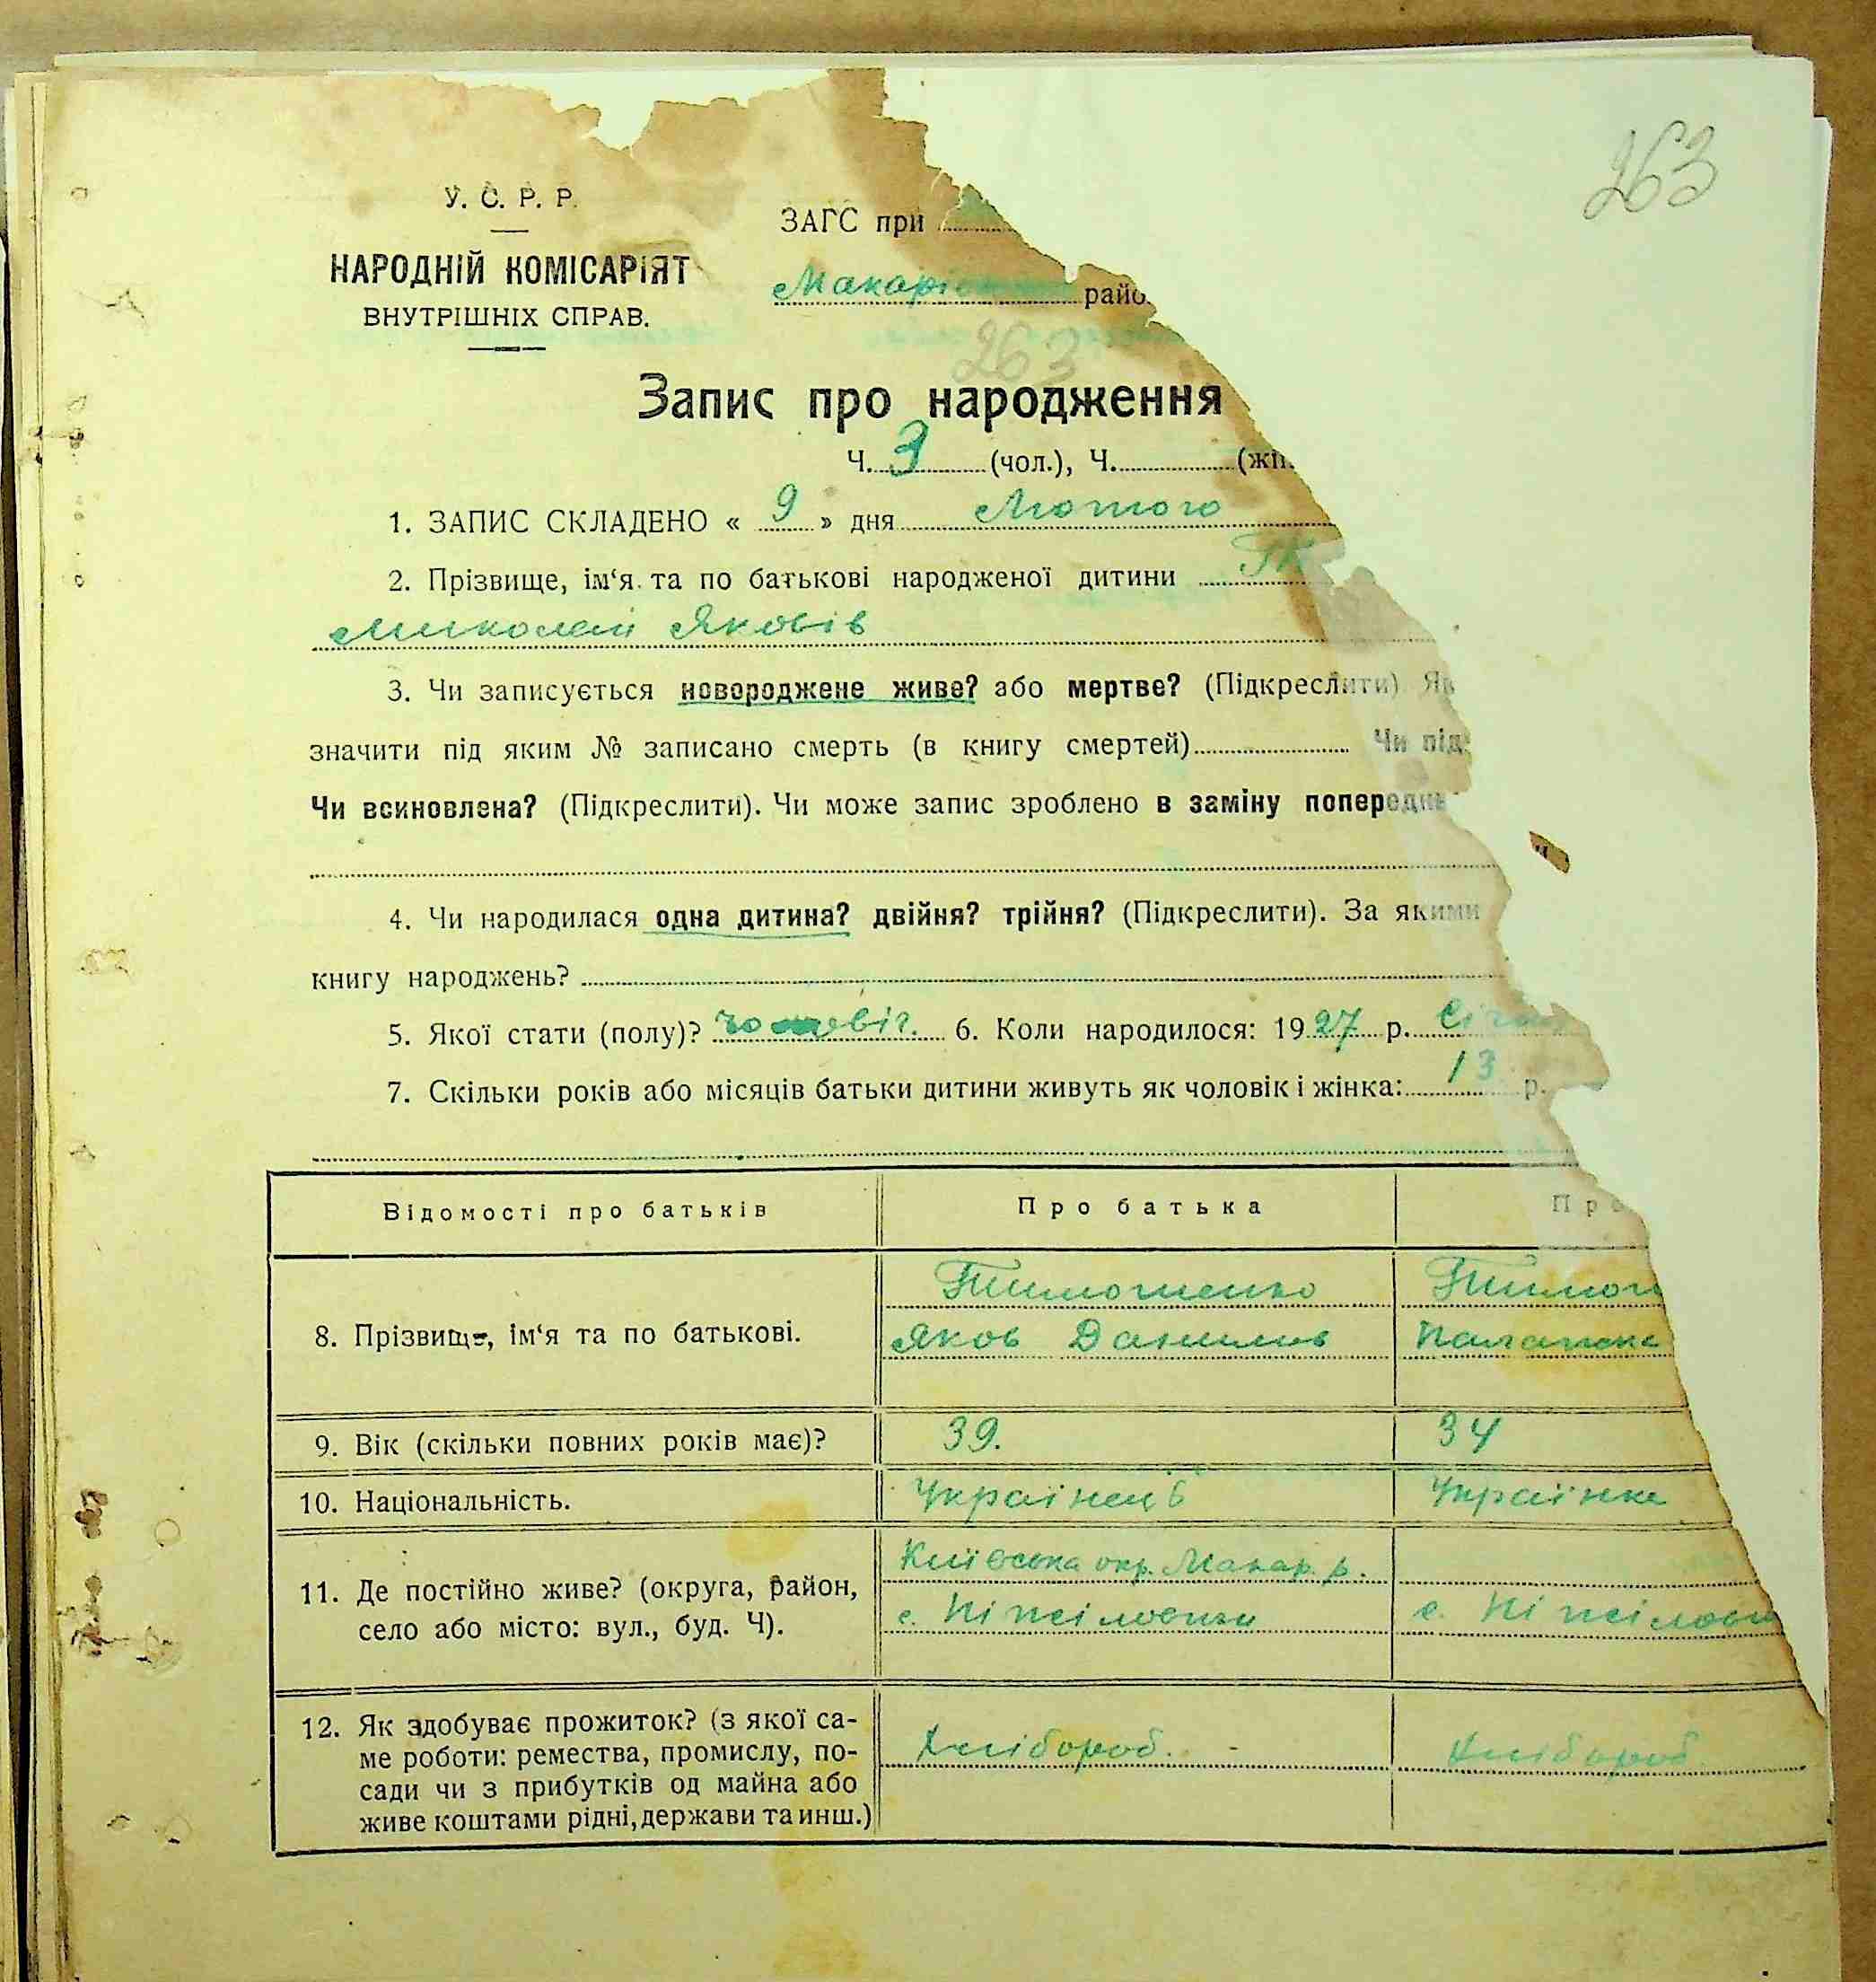 263
У. С. Р. Р.
НАРОДНІЙ КОМІСАРІЯТ
ВНУТРІШНІХ СПРАВ.
ЗАГС при
Макарі
райо
263
Запис про народження
Ч. 3 (чол.), Ч. (жін.
1. ЗАПИС СКЛАДЕНО « 9 » дня Лютого
2. Прізвище, ім‘я та по батькові народженої дитини
Миколай Яковів
3. Чи записується новороджене живе? або мертве? (Підкреслити) Як
значити під яким № записано смерть (в книгу смертей) Чи під
Чи всиновлена? (Підкреслити). Чи може запис зроблено в заміну попередн
4. Чи народилася одна дитина? двійня? трійня? (Підкреслити). За якими
книгу народжень?
5. Якої стати (полу)? чоловіч. 6. Коли народилося: 1927 р. Січня
7. Скільки років або місяців батьки дитини живуть як чоловік і жінка: 13 р.
Відомості про батьків Про батька Про
8. Прізвище, ім‘я та по батькові.
Тимошенко Тимош
Яков Данилив Палажка
9. Вік (скільки повних років має)? 39. 34
10. Національність. Українець Українка
11. Де постійно живе? (округа, район,
село або місто: вул., буд. Ч).
Київська окр. Макар. р.
с.
с.
12. Як здобуває прожиток? (з якої са-
ме роботи: ремества, промислу, по-
сади чи з прибутків од майна або
живе коштами рідні, держави та инш.)
Хлібороб. Хлібороб.